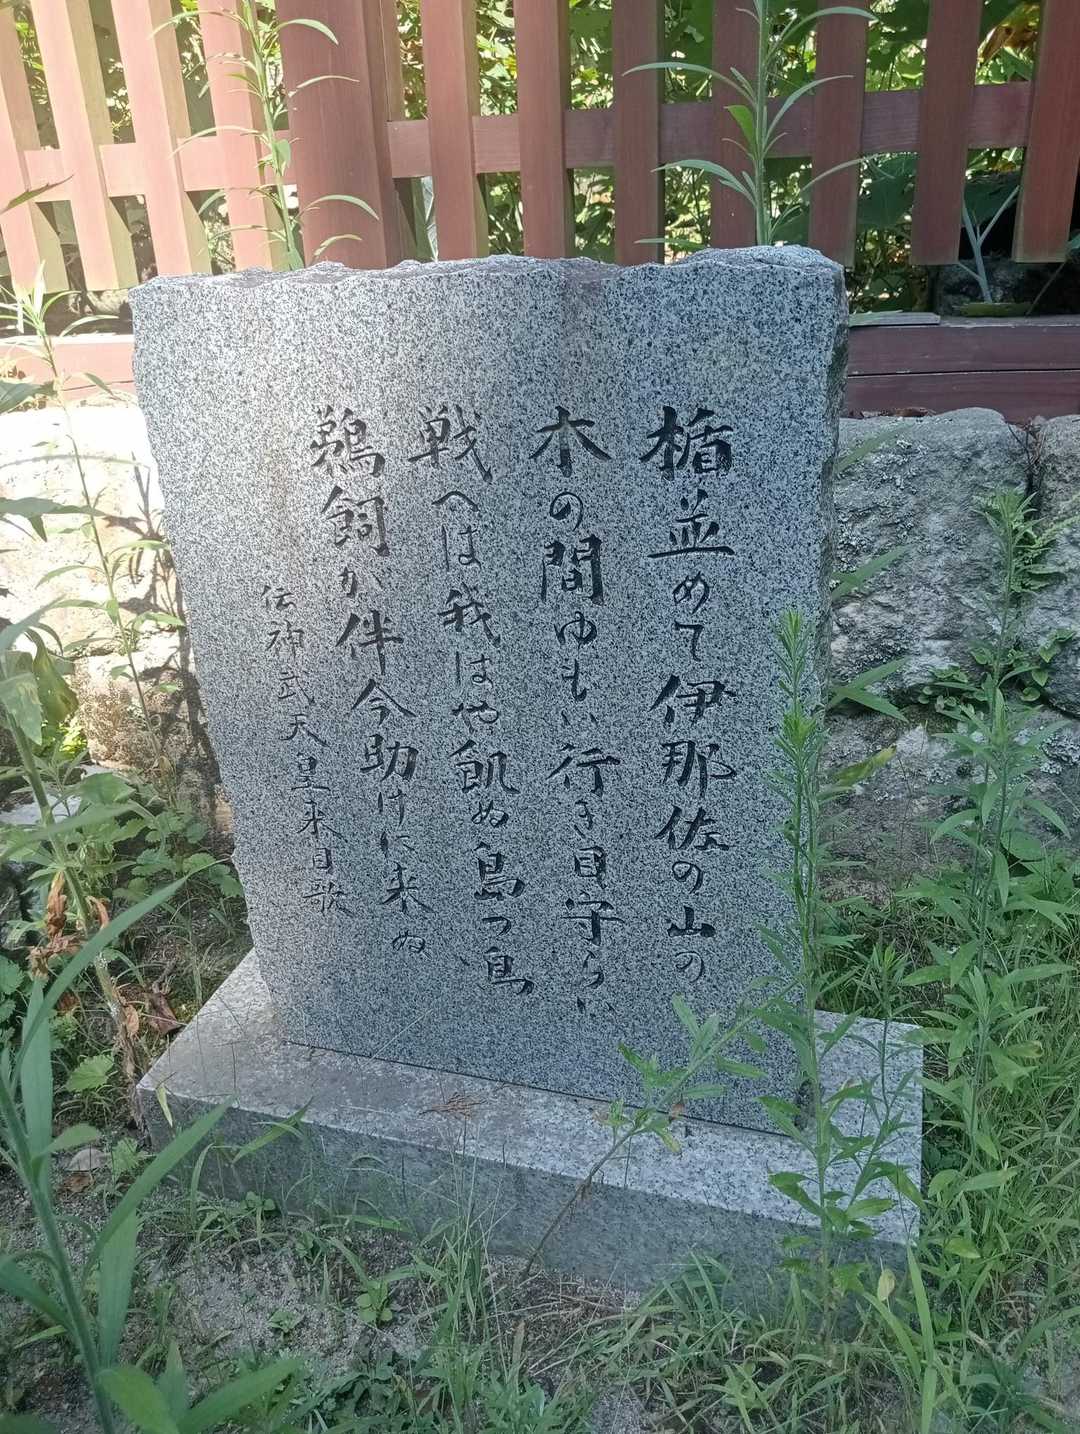 楯並めて伊那佐の山の
木の間ゆもい行き目守らひ
戦へは我はや飢ぬ島つ鳥
鵜飼か伴今助けに来ぬ
伝神武天皇来目歌